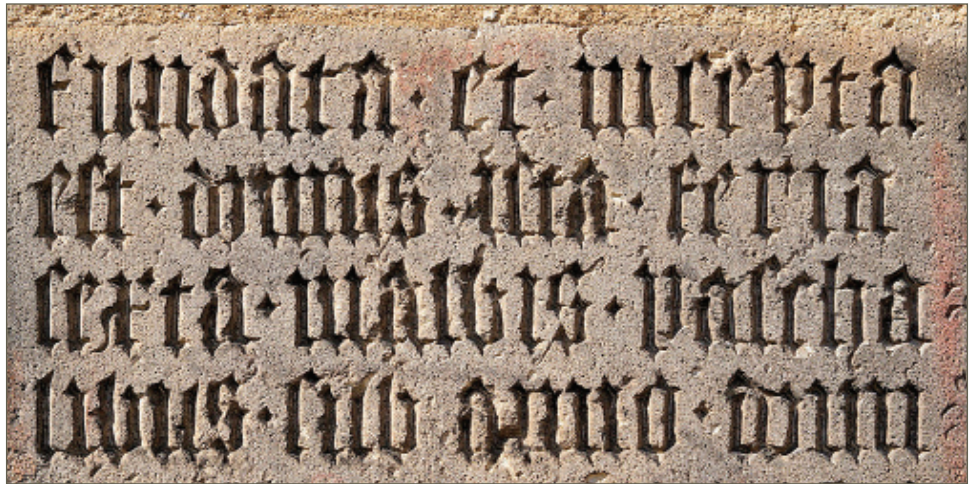 fundata · et · incepta
est · domus · ista · feria
sexta · in albis · pascha
libus · sub anno · dom